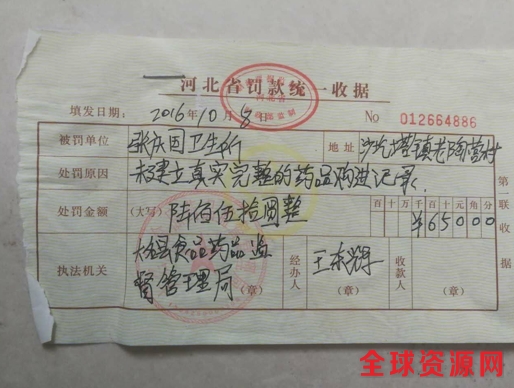 河北省罚款统一收据
填发日期: 2016年10月8日 No 012664886
被罚单位 张庆国卫生所 地址
处罚原因 未建立真实完整的药品购进记录
处罚金额 (大写) 陆佰伍拾圆整 百十万千百十元角分 ¥65000
执法机关 食品药品监
督管理局 (章) 经办人 (章) 收款人 (章)
第 联 收据
全球资源网